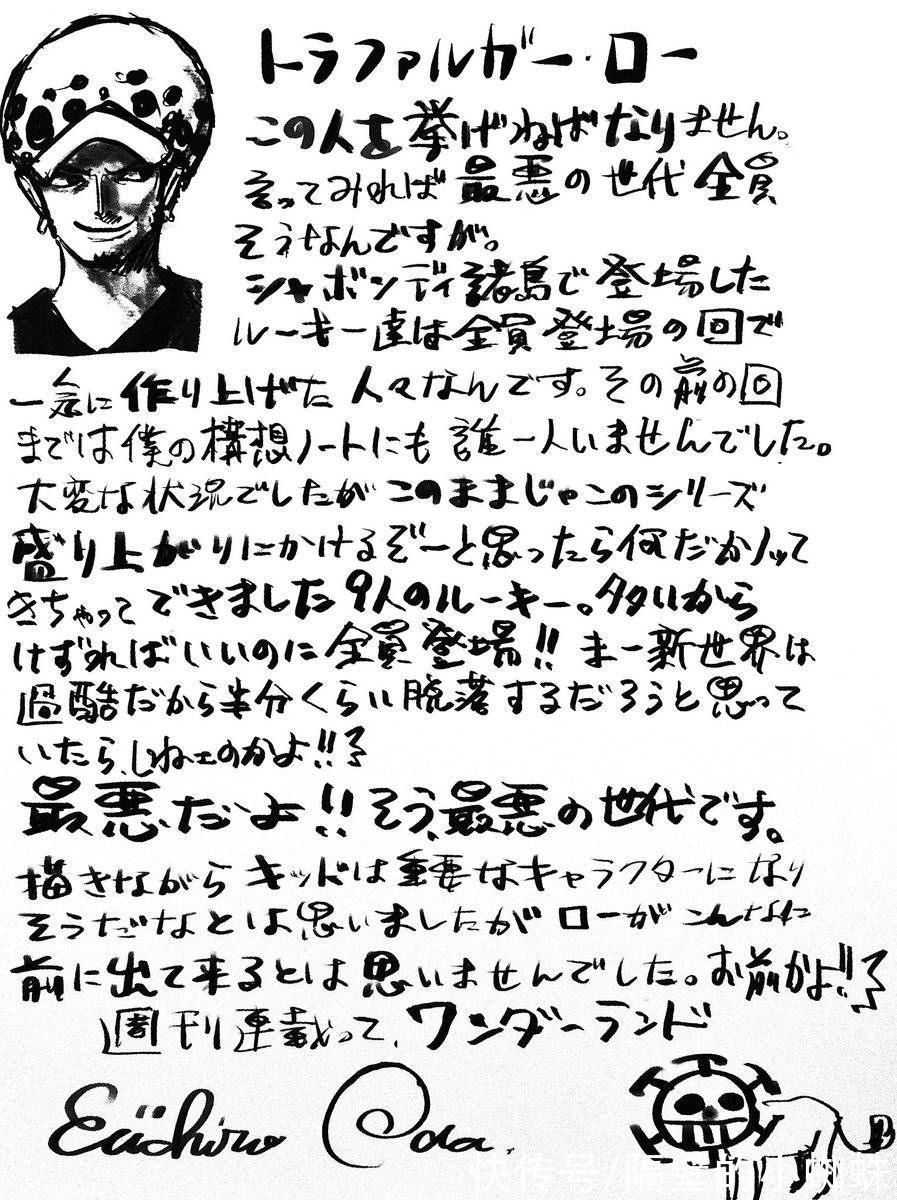 トラファルガー・ロー
この人を挙げねばなりません。
言ってみれば最悪の世代全員
そうなんですが。
シャボンディ諸島で登場した
ルーキー達は全員登場の回で
一気に作り上げた人々なんです。その前の回
までは僕の構想ノートにも誰一人いませんでした。
大変な状況でしたがこのままじゃこのシリーズ
盛り上がりにかけるぞーと思ったら何だかノッて
きちゃってできました9人のルーキー。多いから
けずればいいのに全員登場!! まー新世界は
過酷だから半分くらい脱落するだろうと思って
いたら、しねェのかよ!!
最悪だよ!! そう、最悪の世代です。
描きながらキッドは重要なキャラクターになり
そうだなとは思いましたがローがこんなに
前に出て来るとは思いませんでした。お前かよ!!
週刊連載って、ワンダーランド
Eiichiro Oda.
快传号/悟空的小蜘蛛